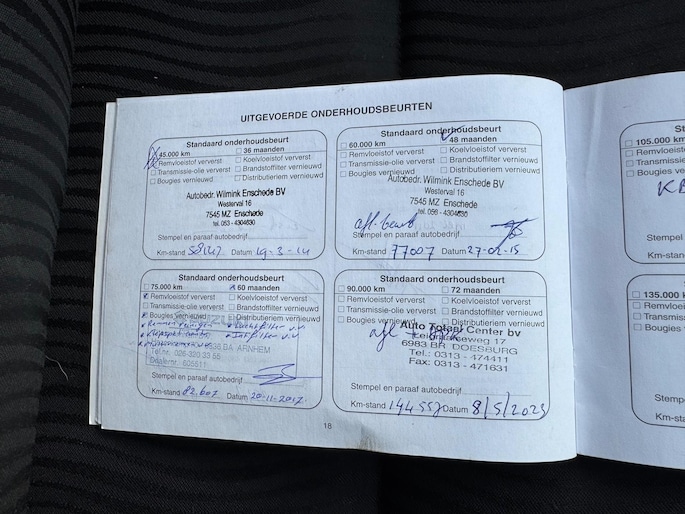 UITGEVOERDE ONDERHOUDSBEURTEN
Standaard onderhoudsbeurt
45.000 km 36 maanden
Remvloeistof ververst Koelvloeistof ververst
Transmissie-olie ververst Brandstoffilter vernieuwd
Bougies vernieuwd Distributieriem vernieuwd
Autobedr. Wilmink Enschede BV
Westerval 16
7545 MZ Enschede
tel. 053 - 4304630
Stempel en paraaf autobedrijf
Km-stand Datum 19-3-14
Standaard onderhoudsbeurt
60.000 km 48 maanden
Remvloeistof ververst Koelvloeistof ververst
Transmissie-olie ververst Brandstoffilter vernieuwd
Bougies vernieuwd Distributieriem vernieuwd
Autobedr. Wilmink Enschede BV
Westerval 16
7545 MZ Enschede
afl. beurt
Stempel en paraaf autobedrijf
Km-stand 77007 Datum 27-02-15
Standaard onderhoudsbeurt
75.000 km 60 maanden
Remvloeistof ververst Koelvloeistof ververst
Transmissie-olie ververst Brandstoffilter vernieuwd
Bougies vernieuwd Distributieriem vernieuwd
ARNHEM
Tel.nr. 026-320 33 55
Stempel en paraaf autobedrijf
Km-stand 82.607 Datum 20-11-2017
Standaard onderhoudsbeurt
90.000 km 72 maanden
Remvloeistof ververst Koelvloeistof ververst
Transmissie-olie ververst Brandstoffilter vernieuwd
Bougies vernieuwd Distributieriem vernieuwd
Auto Totaal Center bv
6983 BR DOESBURG
Tel.: 0313 - 474411
Fax: 0313 - 471631
Stempel en paraaf autobedrijf
Km-stand 144.557 Datum 8/5/2023
18
105.000 km
Remvloeistof
Transmissie
Bougies
Stemp
Km-stand
135.000 km
Remvloeistof
Transmissie
Bougies
Stemp
Km-sta